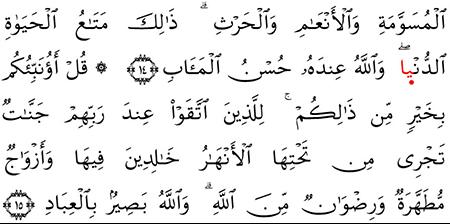 ٱلْمُسَوَّمَةِ وَٱلْأَنْعَٰمِ وَٱلْحَرْثِ ۗ ذَٰلِكَ مَتَٰعُ ٱلْحَيَوٰةِ
ٱلدُّنْيَا ۖ وَٱللَّهُ عِندَهُۥ حُسْنُ ٱلْمَـَٔابِ ١٤ ۞ قُلْ أَؤُنَبِّئُكُم
بِخَيْرٍ مِّن ذَٰلِكُمْ ۚ لِلَّذِينَ ٱتَّقَوْا۟ عِندَ رَبِّهِمْ جَنَّٰتٌ
تَجْرِى مِن تَحْتِهَا ٱلْأَنْهَٰرُ خَٰلِدِينَ فِيهَا وَأَزْوَٰجٌ
مُّطَهَّرَةٌ وَرِضْوَٰنٌ مِّنَ ٱللَّهِ ۗ وَٱللَّهُ بَصِيرٌۢ بِٱلْعِبَادِ ١٥